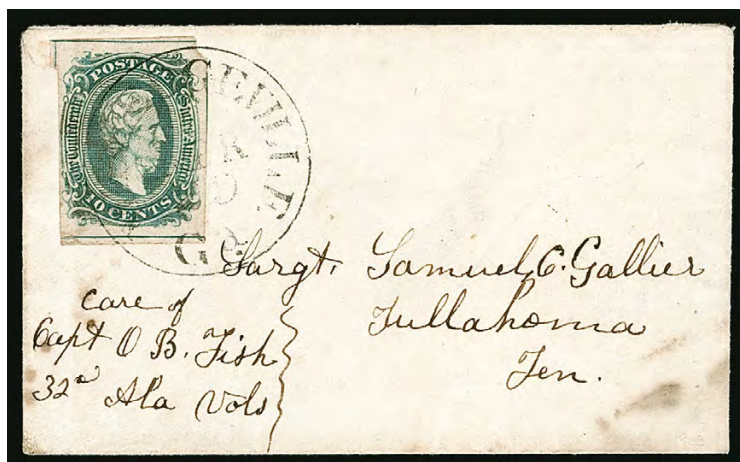 POSTAGE
The Confederate States of America
10 CENTS
GEVILLE
Ga
Sargt. Samuel C. Gallier
Tullahoma
Ten.
care of
Capt O B. Fish
32d Ala Vols